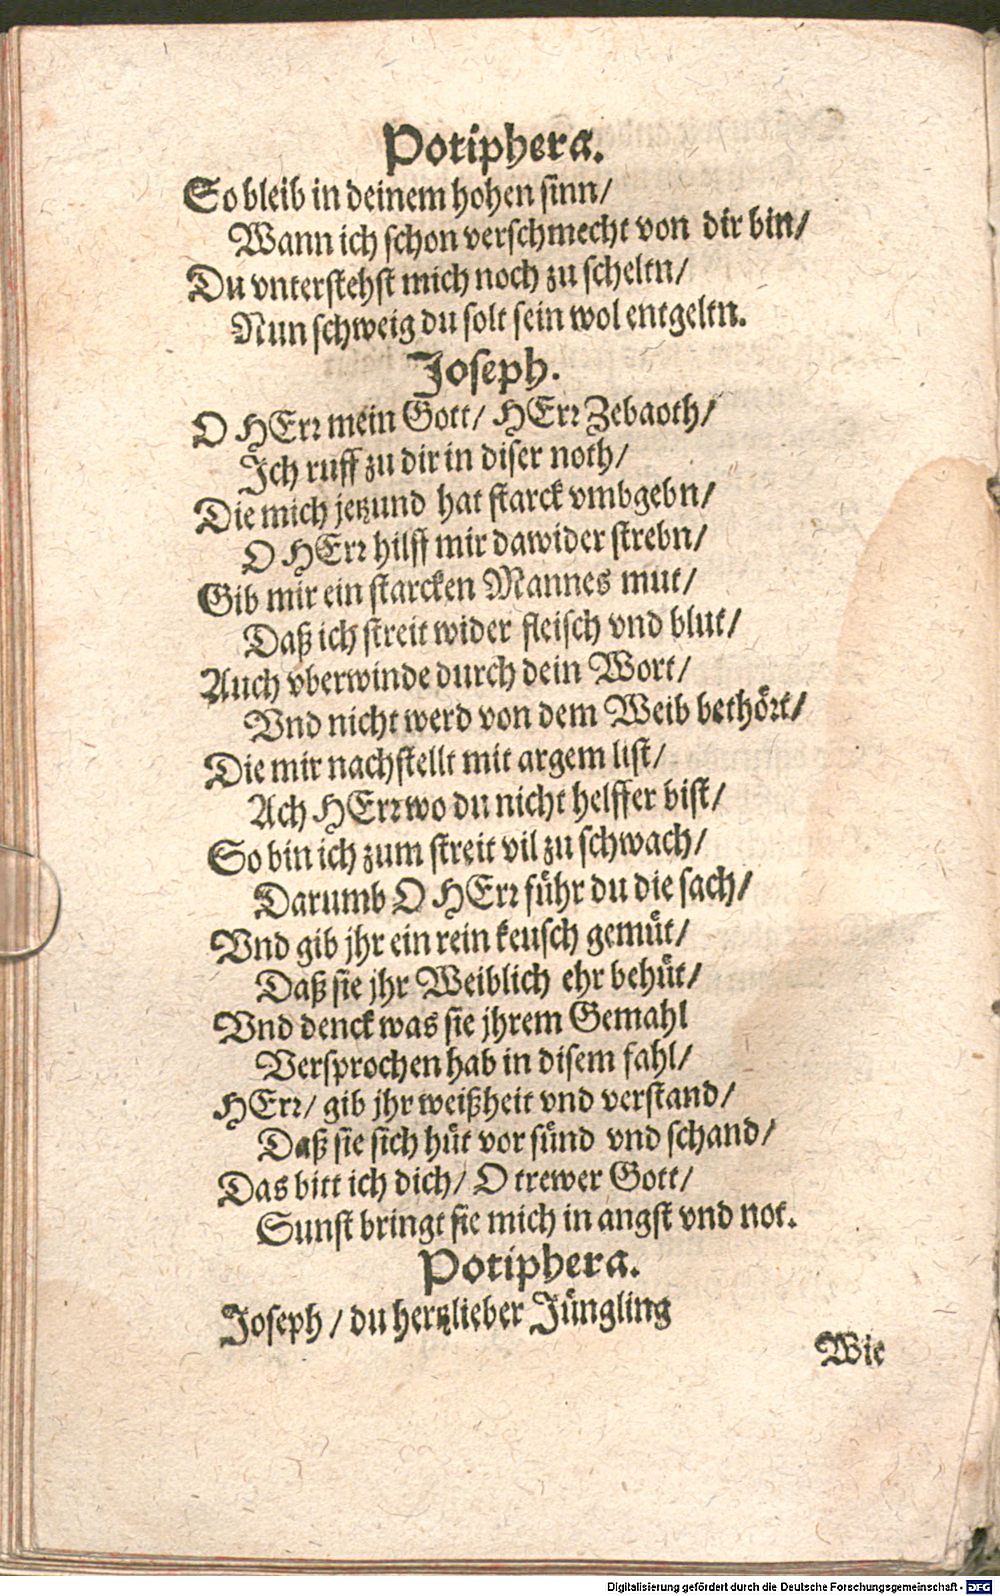 Potiphera.
So bleib in deinem hohen sinn/
Wann ich schon verschmecht von dir bin/
Du vnterstehst mich noch zu scheltn/
Nun schweig du solt sein wol entgeltn.
Joseph.
O HErr mein Gott/ HErr Zebaoth/
Ich ruff zu dir in diser noth/
Die mich jetzund hat starck vmbgebn/
O HErr hilff mir dawider strebn/
Gib mir ein starcken Mannes mut/
Daß ich streit wider fleisch vnd blut/
Auch vberwinde durch dein Wort/
Vnd nicht werd von dem Weib bethört/
Die mir nachstellt mit argem list/
Ach HErr wo du nicht helffer bist/
So bin ich zum streit vil zu schwach/
Darumb O HErr führ du die sach/
Vnd gib jhr ein rein keusch gemüt/
Daß sie jhr Weiblich ehr behüt/
Vnd denck was sie jhrem Gemahl
Versprochen hab in disem fahl/
HErr/ gib jhr weißheit vnd verstand/
Daß sie sich hüt vor sünd vnd schand/
Das bitt ich dich/ O trewer Gott/
Sunst bringt sie mich in angst vnd not.
Potiphera.
Joseph/ du hertzlieber Jüngling
Wie
Digitalisierung gefördert durch die Deutsche Forschungsgemeinschaft - DFG